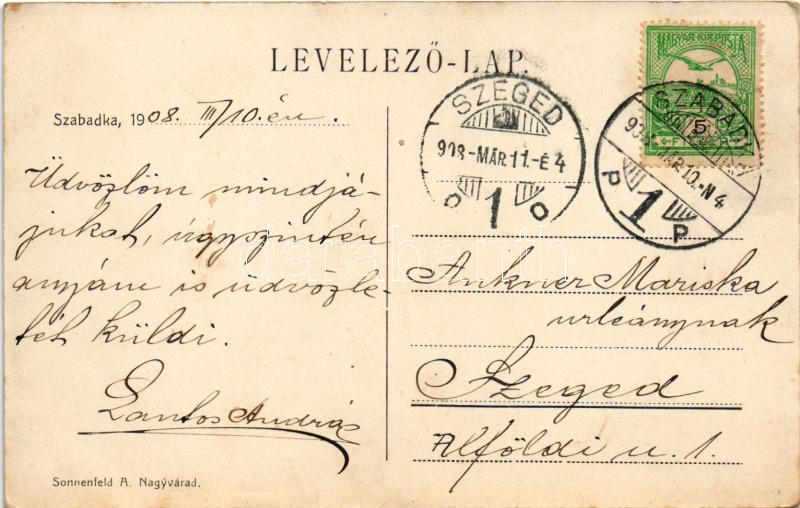 LEVELEZŐ-LAP.
MAGYAR KIR. POSTA
5
FILLÉR
SZEGED
908-MÁR.11.-É 4
1
SZABAD
908-MÁR.10.-N 4
P 1 P
Szabadka, 1908. III/10.én.
Üdvözlöm mindjá-
jukat, úgyszintén
anyám is üdvözle-
tét küldi.
Lantos András
Ankner Mariska
urleánynak
Szeged
Alföldi u. 1.
Sonnenfeld A. Nagyvárad.
darabanth